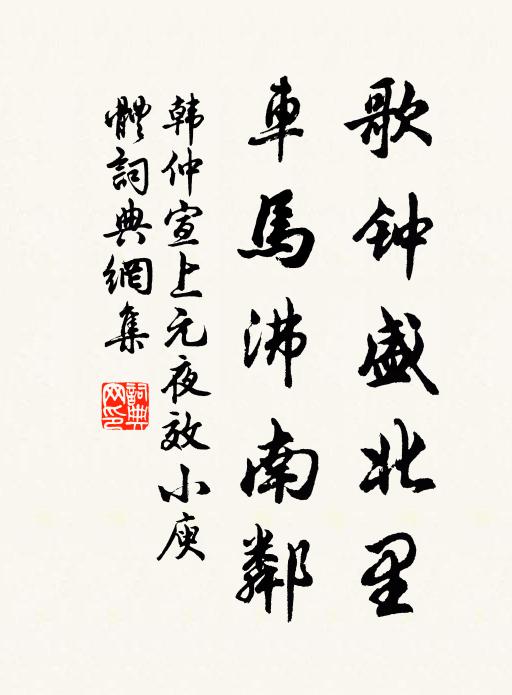 歌钟盛北里
車馬沸南鄰
韩仲宣上元夜效小庾
體詞典網集
詞典網印